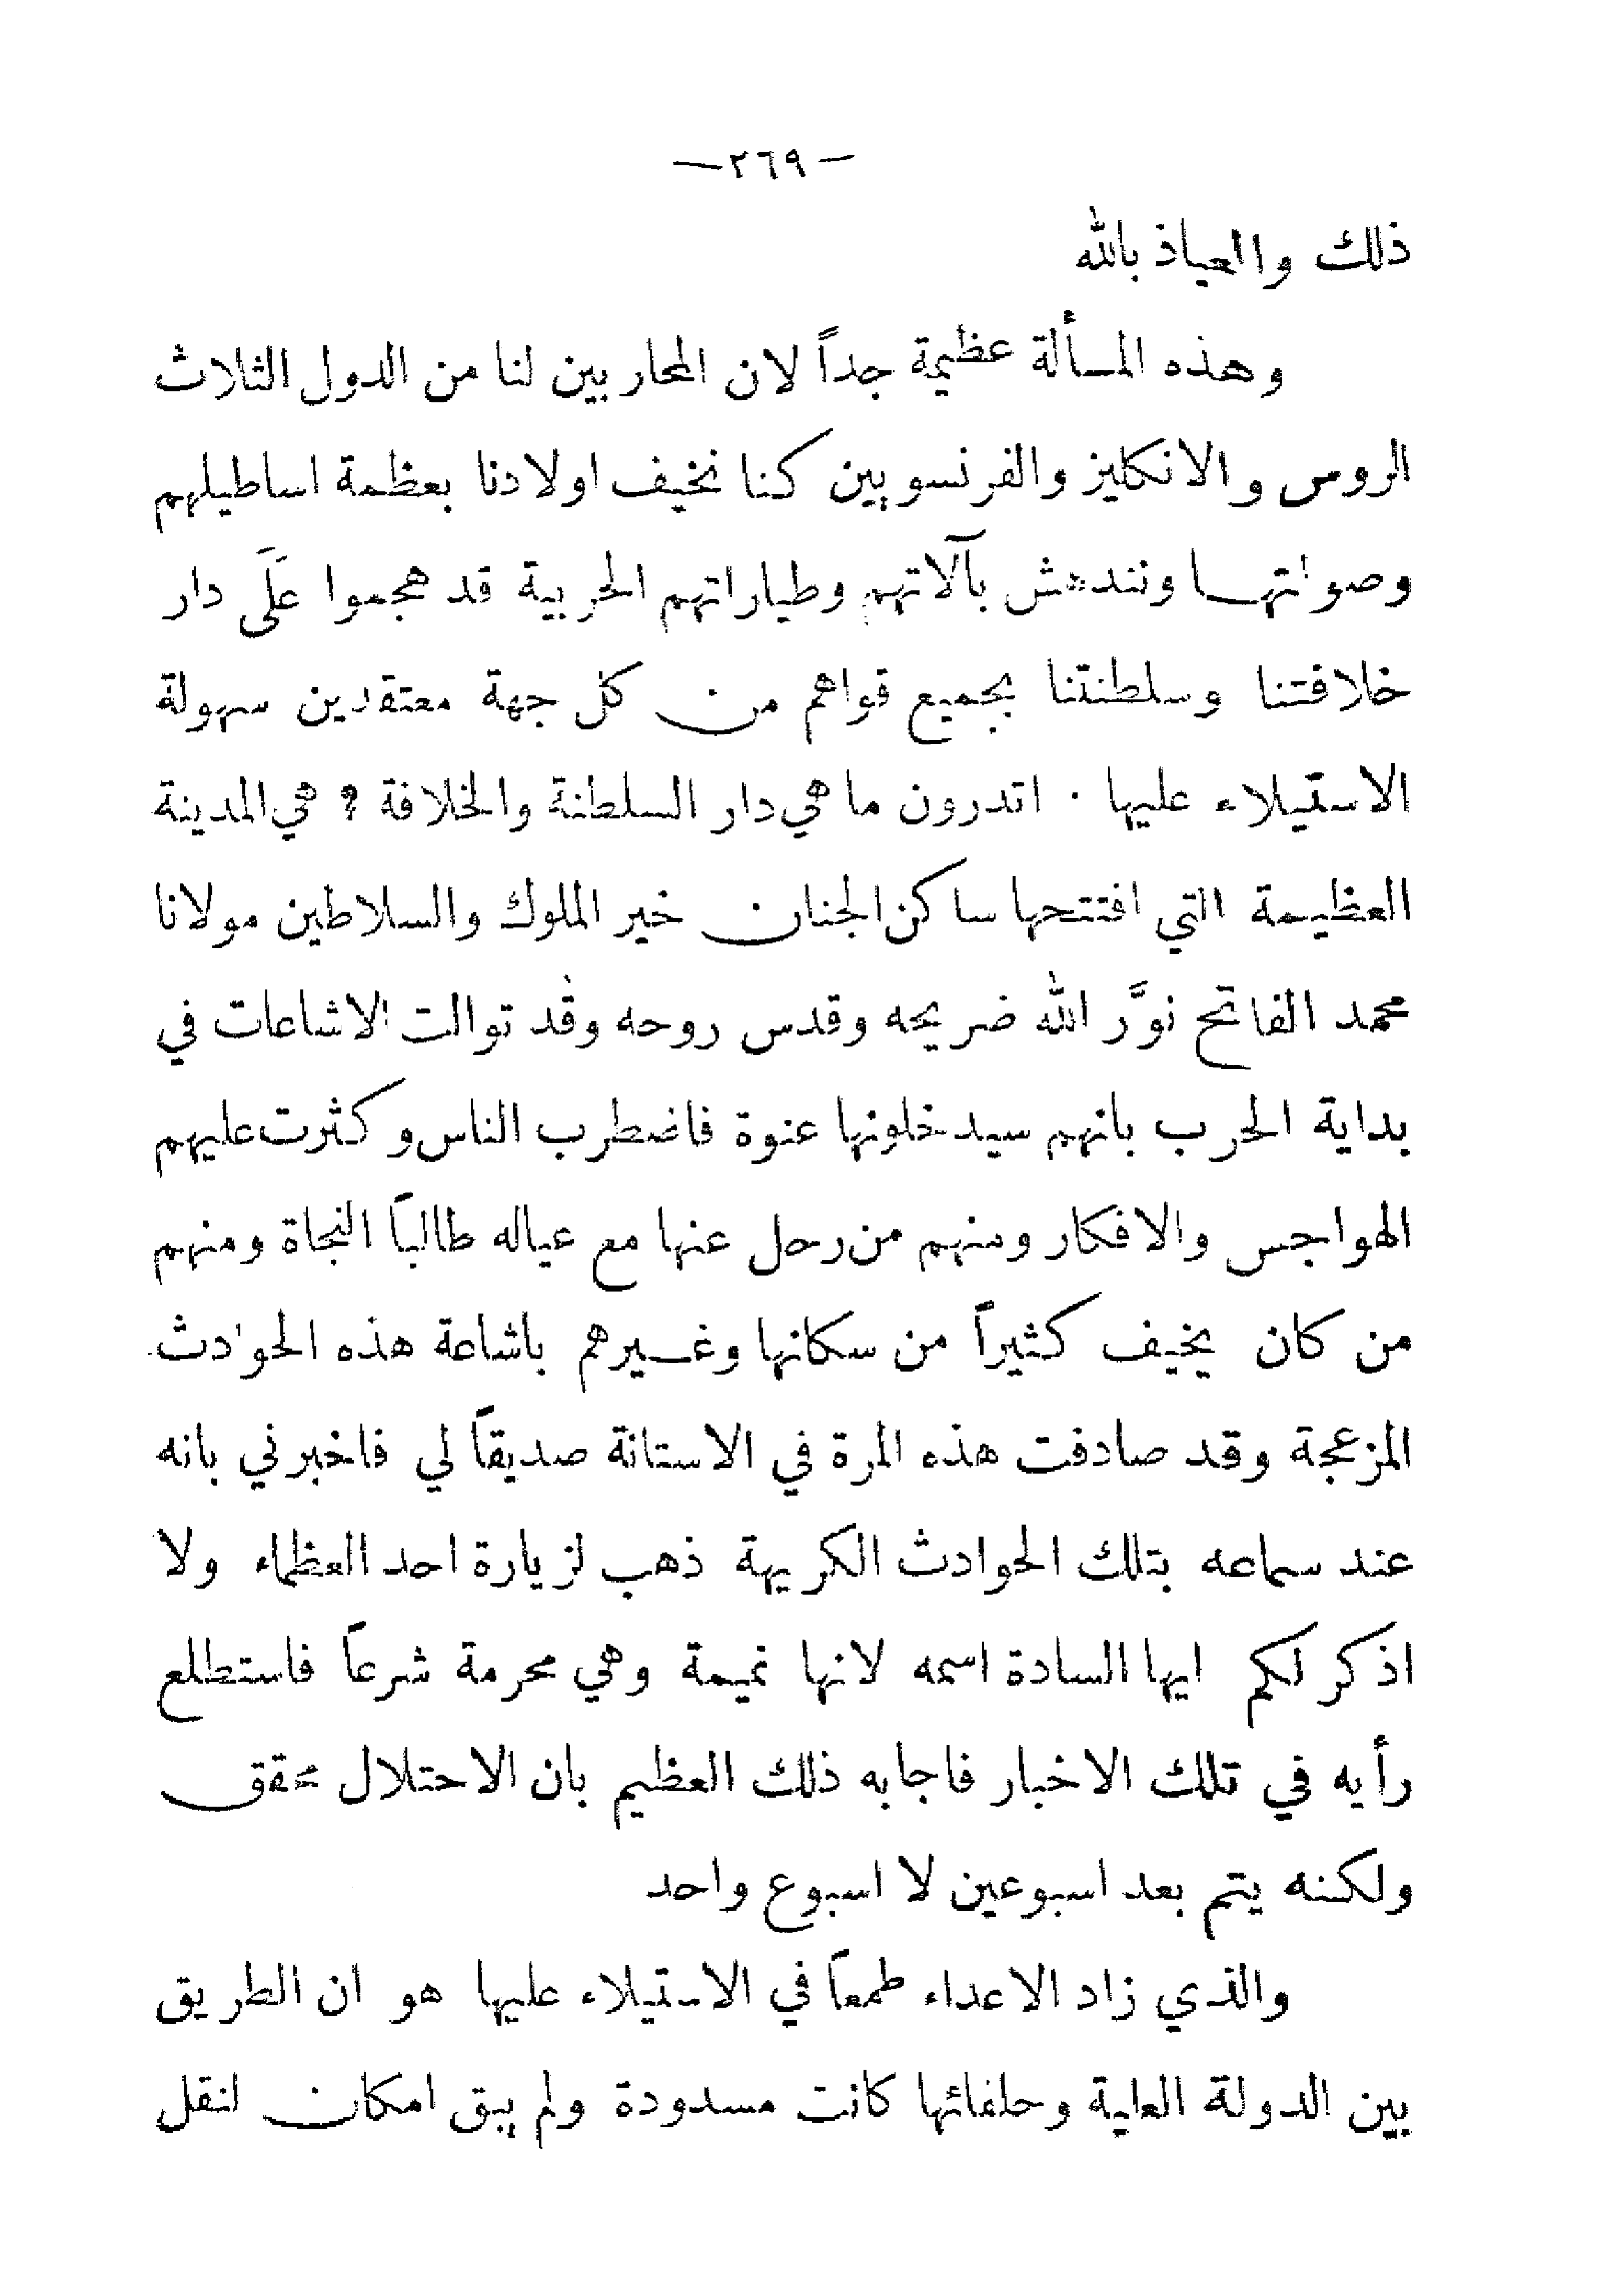 — ٢٦٩ —
ذلك والعياذ بالله
وهذه المسألة عظيمة جداً لان المحاربين لنا من الدول الثلاث
الروس والانكليز والفرنسويين كنا نخيف اولادنا بعظمة اساطيلهم
وصولتها وتندهش بآلاتهم وطياراتهم الحربية قد هجموا عَلَى دار
خلافتنا وسلطنتنا بجميع قواهم من كل جهة معتقدين سهولة
الاستيلاء عليها . اتدرون ما هي دار السلطنة والخلافة ? هي المدينة
العظيمة التي افتتحها ساكن الجنان خير الملوك والسلاطين مولانا
محمد الفاتح نوَّر الله ضريحه وقدس روحه وقد توالت الاشاعات في
بداية الحرب بانهم سيدخلونها عنوة فاضطرب الناس وكثرت عليهم
الهواجس والافكار ومنهم من رحل عنها مع عياله طالباً النجاة ومنهم
من كان يخيف كثيراً من سكانها وغيرهم باشاعة هذه الحوادث
المزعجة وقد صادفت هذه المرة في الاستانة صديقاً لي فاخبرني بانه
عند سماعه بتلك الحوادث الكريهة ذهب لزيارة احد العظماء ولا
اذكر لكم ايها السادة اسمه لانها نميمة وهي محرمة شرعاً فاستطلع
رأيه في تلك الاخبار فاجابه ذلك العظيم بان الاحتلال محقق
ولكنه يتم بعد اسبوعين لا اسبوع واحد
والذي زاد الاعداء طمعاً في الاستيلاء عليها هو ان الطريق
بين الدولة العلية وحلفائها كانت مسدودة ولم يبق امكان لنقل